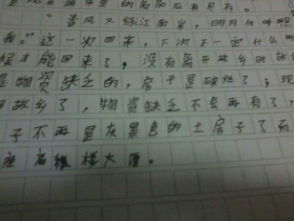 品应有尽有。
春风又绿江南岸,明月何时照
我。"这一次回来,下次不一定什么
才能回来了,没有离开故乡时故
是物资缺乏的,房子是破烂了;现
故乡了,物资缺乏不是再有了,
子不再是灰黑色的土房子了而
座高楼大厦。